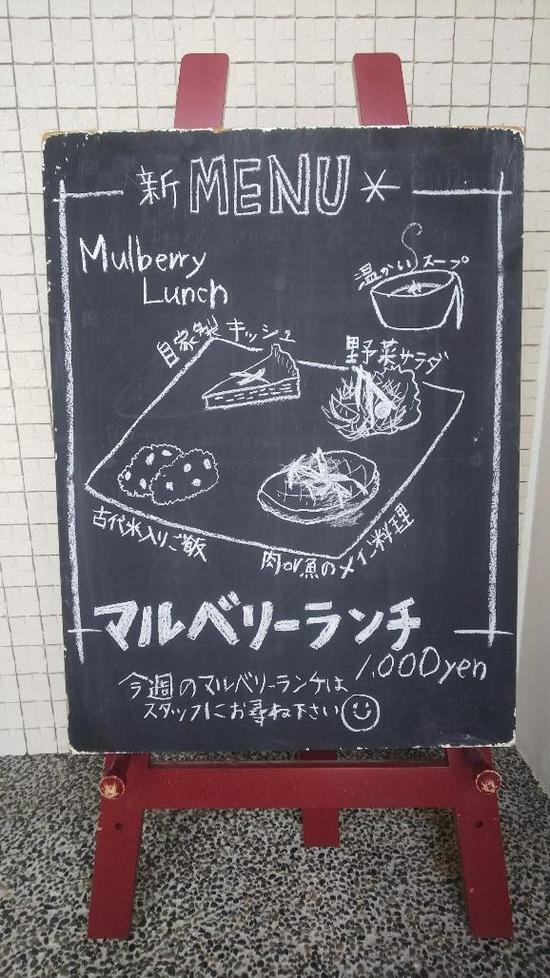 新MENU*
Mulberry
Lunch
温かいスープ
自家製キッシュ
野菜サラダ
古代米入りご飯
肉or魚のメイン料理
マルベリーランチ
1,000yen
今週のマルベリーランチは
スタッフにお尋ね下さい